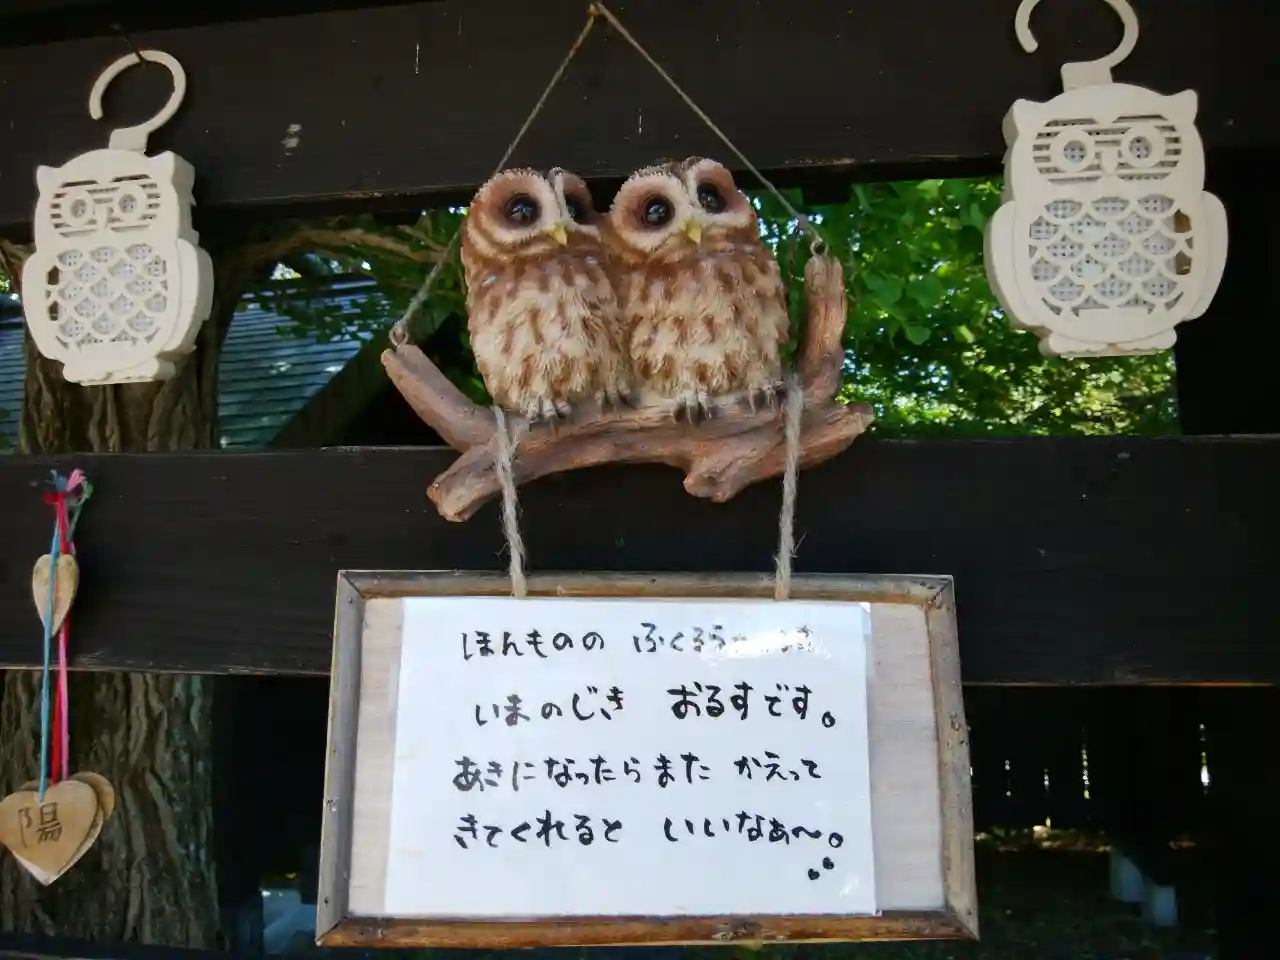 ほんものの ふくろう
いまのじき おるすです。
あきになったらまた かえって
きてくれると いいなぁ〜。
陽